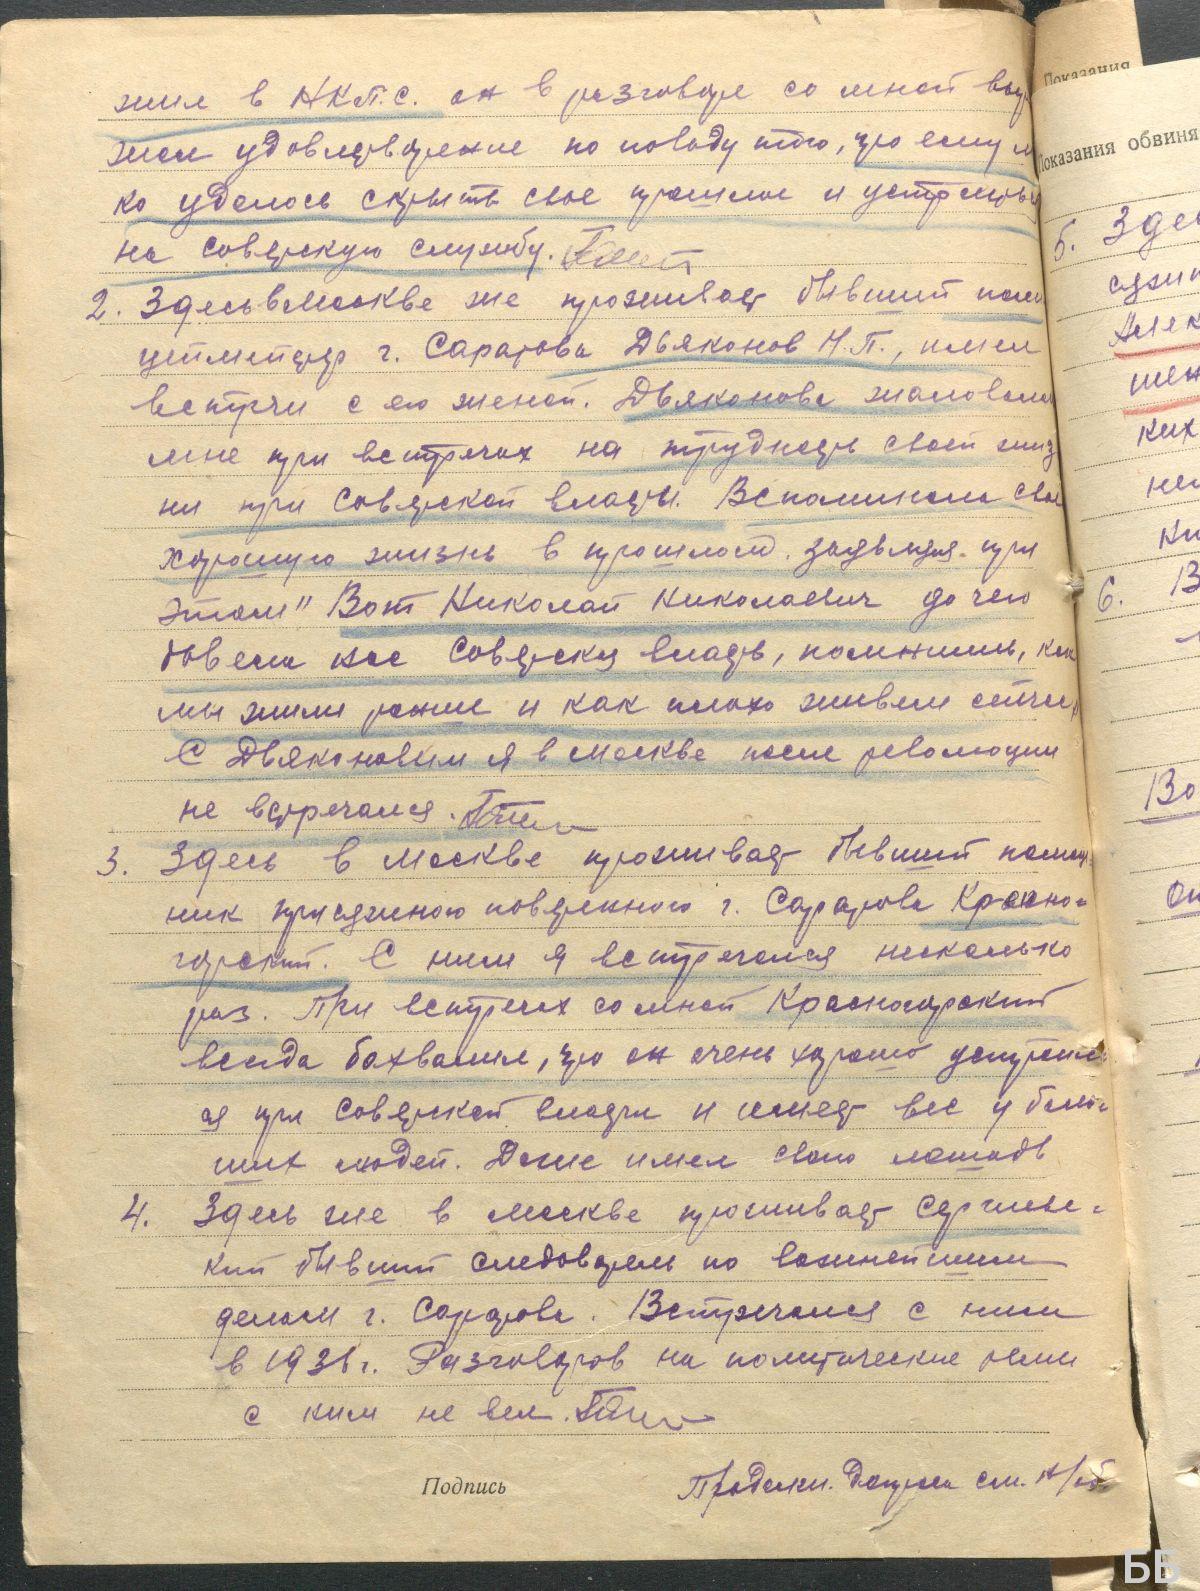 жил в НКП.С. он в разговоре со мной выра
жал удовлетворение по поводу того, что ему
ко удалось скрыть свое прошлое и устроиться
на советскую службу.
2. Здесь в Москве же проживает бывший поли
цеймейстер г. Саратова Дьяконов Н.П., имел
встречи с его женой. Дьяконова жаловалась
мне при встречах на трудность своей жиз
ни при советской власти. Вспоминала свою
хорошую жизнь в прошлом. заявляя при
этом" Вот Николай Николаевич до чего
довела нас советская власть, помнишь, как
мы жили раньше и как плохо живем сейчас
С Дьяконовым я в Москве после революции
не встречался.
3. Здесь в Москве проживает бывший помощ-
ник присяжного поверенного г. Саратова Красно-
горский. С ним я встречался несколько
раз. При встречах со мной Красногорский
всегда бахвалил, что он очень хорошо устроил-
ся при советской власти и имеет вес у боль-
ших людей. Даже имел свою лошадь
4. Здесь же в Москве проживает
кий бывший следователь по важнейшим
делам г. Саратова. Встречался с ним
в 1931 г. Разговоров на политические темы
с ким не вел.
Подпись
Продолж. допроса см. н/об.
Показания
Показания обвиня
5. Здес
ких
6. В
Во
ББ